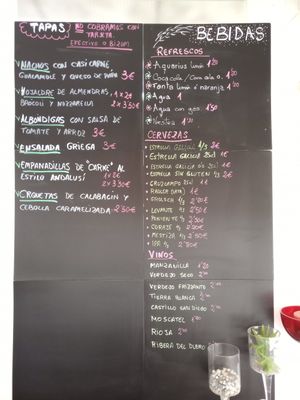 TAPAS
NO COBRAMOS CON
TARJETA
EFECTIVO O BIZUM
NACHOS CON CASI CARNE
GUACAMOLE Y QUESO DE 3€
HOJALDRE DE ALMENDRAS, 1x2€
BRÓCOLI Y MOZZARELLA 2x3'50€
ALBÓNDIGAS CON SALSA DE
TOMATE Y ARROZ 3€
ENSALADA GRIEGA 3€
EMPANADILLAS DE "CARNE" AL
ESTILO ANDALUSÍ
2x3'50€
CROQUETAS DE CALABACÍN Y
CEBOLLA CARAMELIZADA 2'50€
BEBIDAS
REFRESCOS
Aquarius limón 1'50
CocaCola
Fanta limón o naranja 1'50
Agua 1
Agua con gas 1'50
Nestea 1'50
CERVEZAS
ESTRELLA GALICIA 1/3 2€
ESTRELLA GALICIA 1€
ESTRELLA GALICIA 0'0 25cl 1€
ESTRELLA SIN GLUTEN 2€
CRUZCAMPO 25cl 1€
RADLER 1€
LEVANTE
PONIENTE
CORAJE
MESTIZA
IPA
VINOS
MANZANILLA
VERDEJO SECO
VERDEJO FRIZZANTE
TIERRA BLANCA
CASTILLO SAN DIEGO
MOSCATEL
RIOJA
RIBERA DEL DUERO